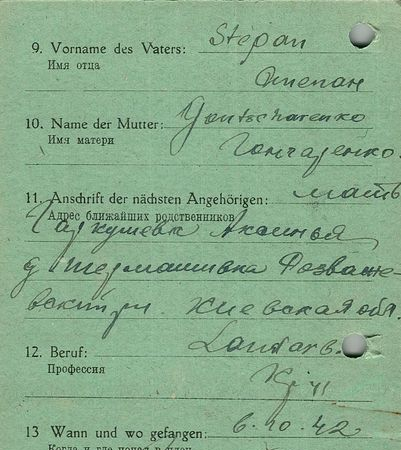 9. Vorname des Vaters: Stepan
Имя отца
Степан
10. Name der Mutter: Gontscharenko
Имя матери
Гончаренко.
11. Anschrift der nächsten Angehörigen: мать
Адрес ближайших родственников
Аксинья
д Термаховка Розваже-
вский р. Киевская обл.
12. Beruf: Landarb.
Профессия
13 Wann und wo gefangen: 6.10.42
Когда и где попал в плен